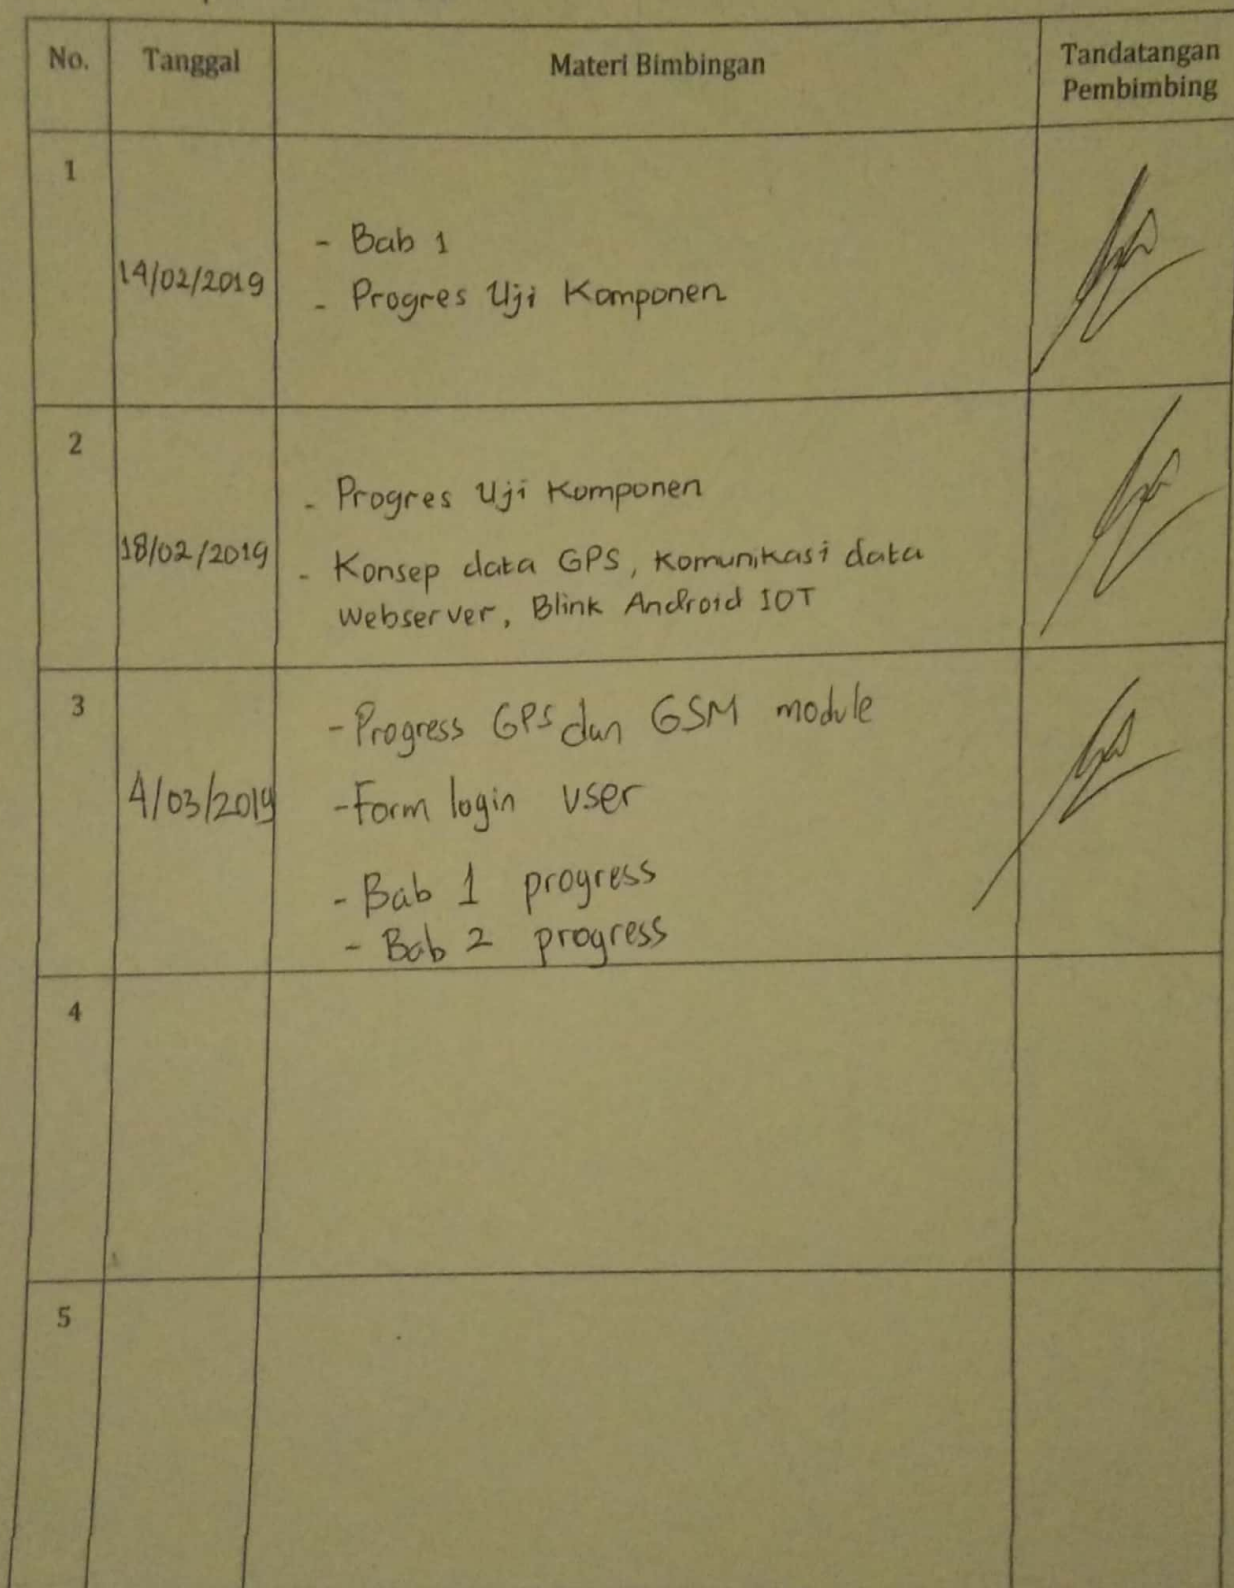 No. Tanggal Materi Bimbingan Tandatangan
Pembimbing
1
14/02/2019
- Bab 1
- Progres Uji Komponen
2
18/02/2019
- Progres Uji Komponen
- Konsep data GPS, Komunikasi data
Webserver, Blink Android IOT
3
4/03/2019
- Progress GPS dan GSM module
- Form login user
- Bab 1 progress
- Bab 2 progress
4
5